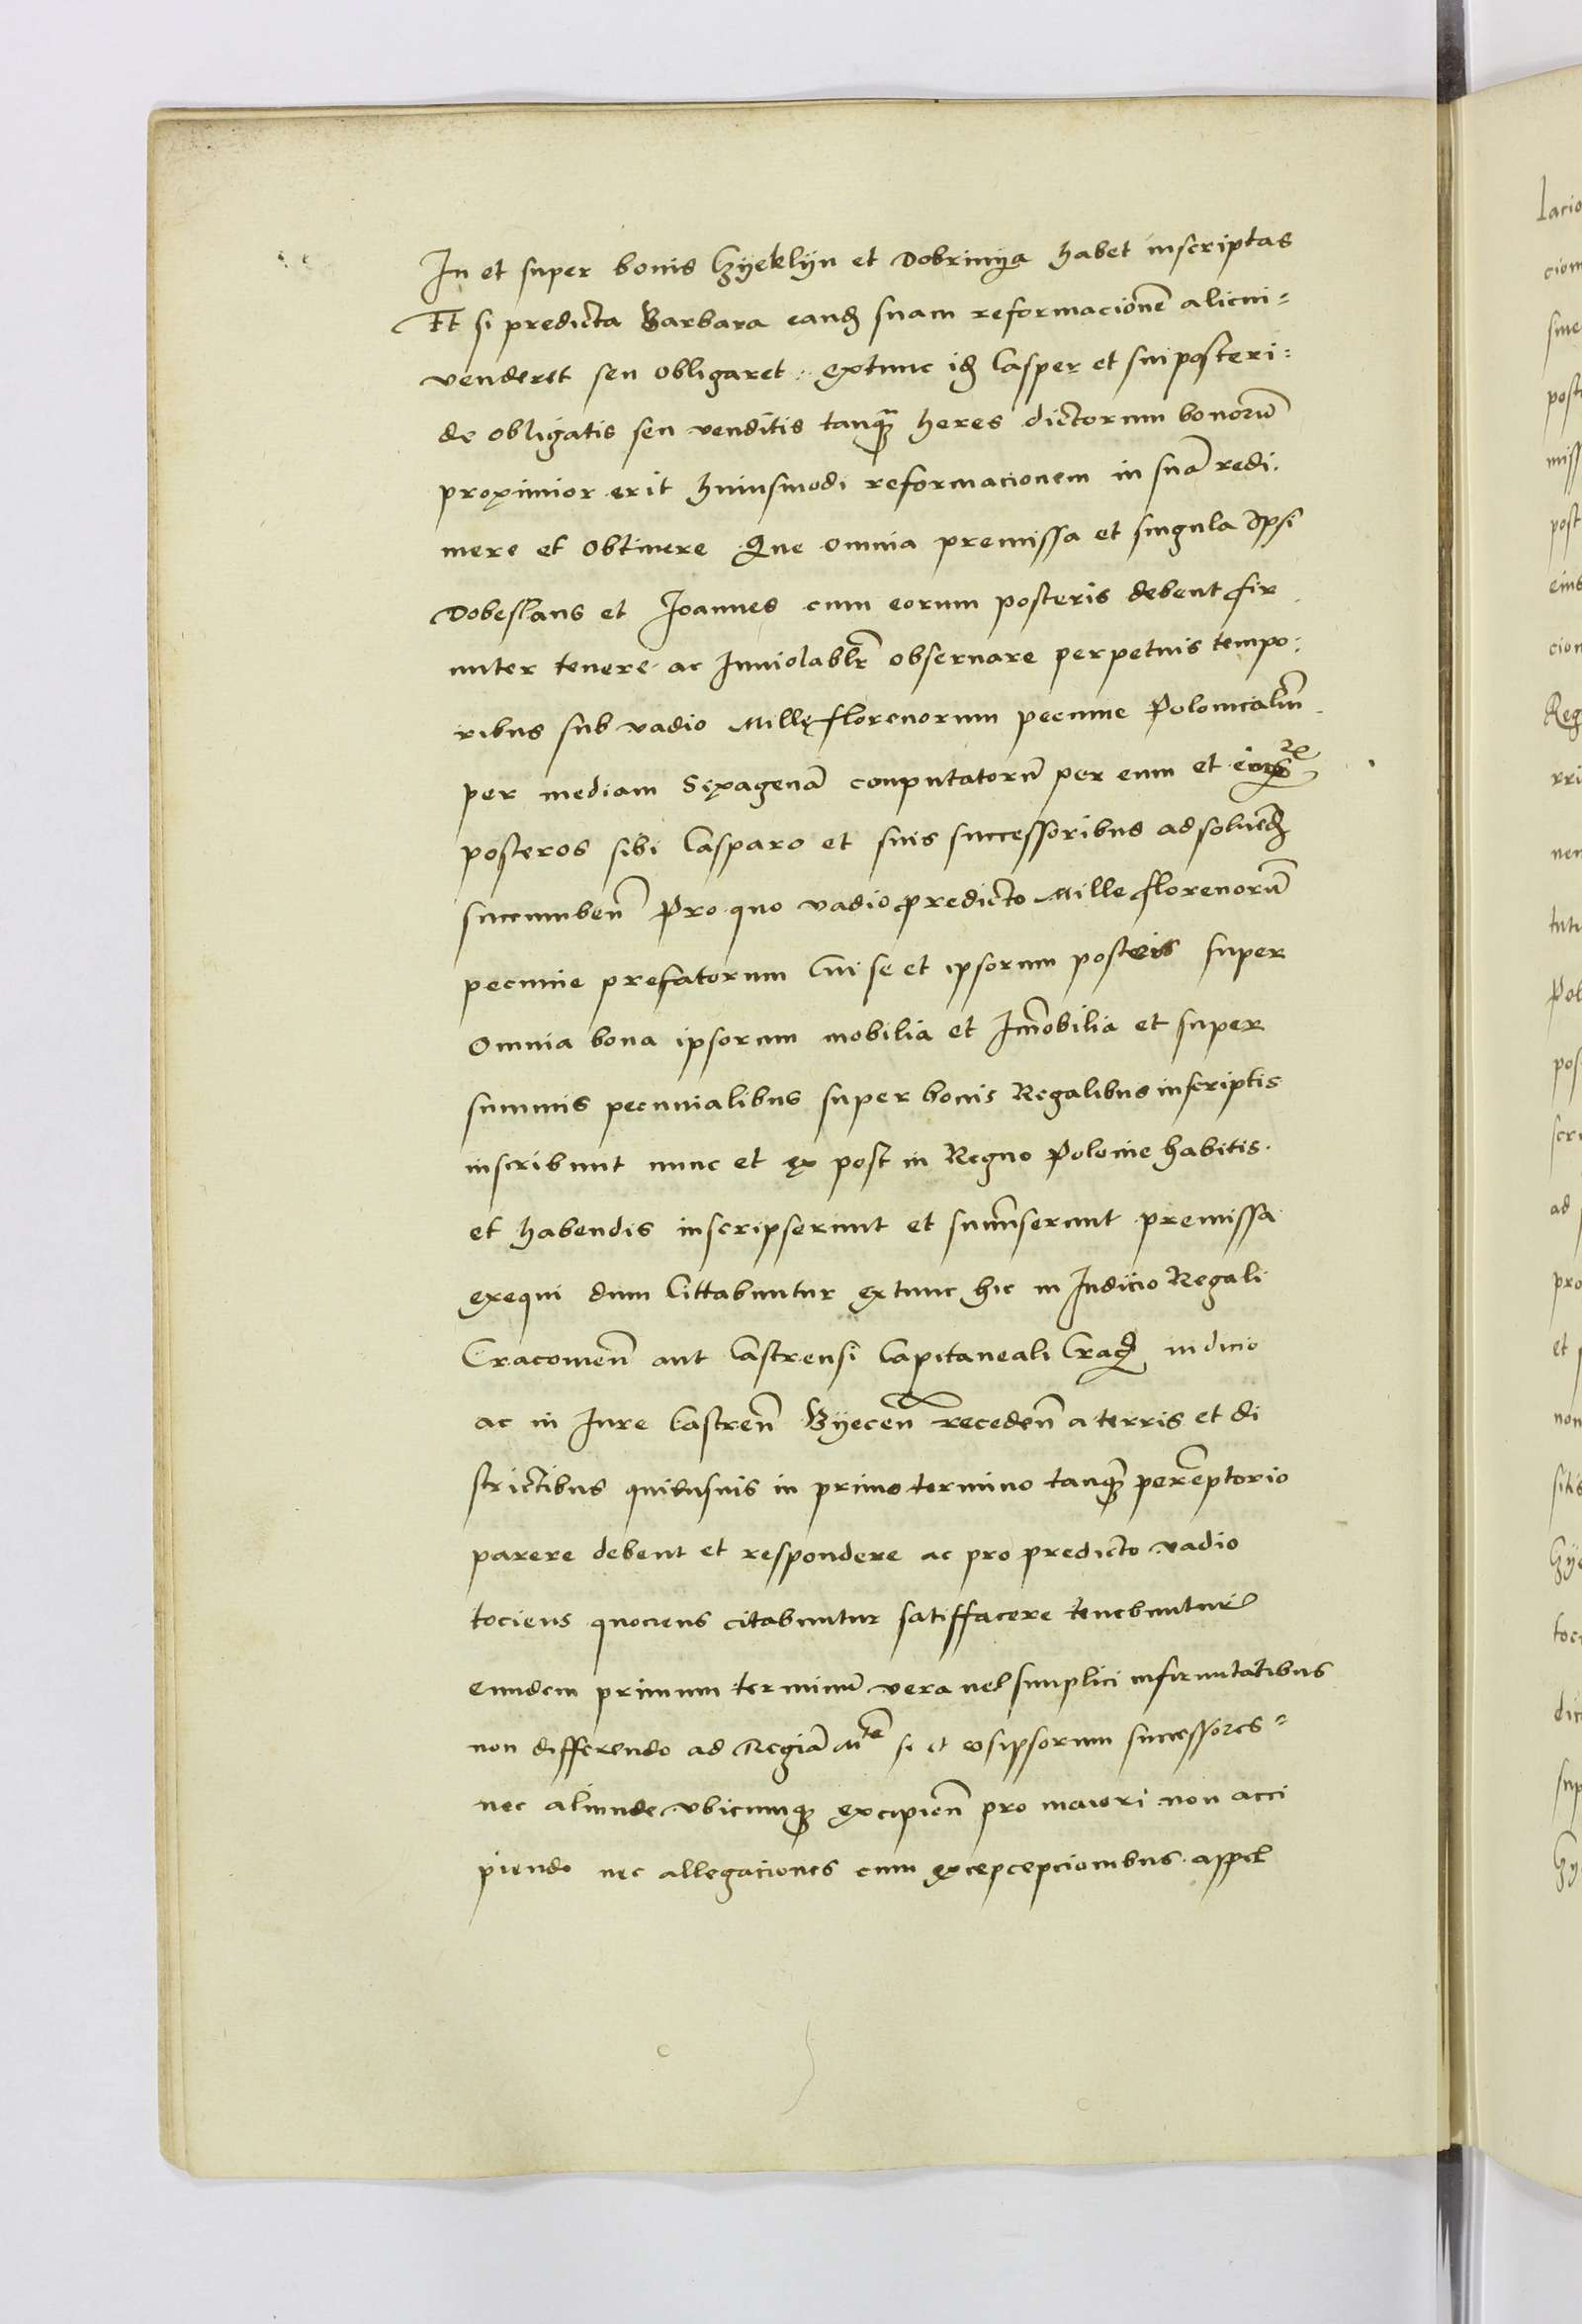 In et super bonis Gÿeklÿn et Dobrinÿa habet inscriptas
Et si predicta Barbara eand suam reformacionē alicui=
venderet seu obligaret extunc id Casper et sui posteri=
de obligatis seu venditis tanqȝ heres dictorum bonorū
proximior erit huiusmodi reformacionem in suā redi
mere et obtinere Que omnia premissa et singula ipsi
Dobeslaus et Joannes cum eorum posteris debent fir
miter tenere ac Inuiolablr̄ obseruare perpetuis tempo:
ribus sub vadio Mille florenorum pecunie Polonicalīn
per mediam Sexagenā conputatorū per eum et eius
posteros sibi Casparo et suis successoribus ad soluend
succumben̄ Pro quo vadio predicto Mille florenorū
pecunie prefatorum Cui se et ipsorum posteris super
Omnia bona ipsorum mobilia et Im̄obilia et super
summis pecunialibus super bonis Regalibus inscriptis
inscribunt nunc et ex post in Regno Polonie habitis
et habendis inscripserunt et sum̄serunt premissa
exequi dum Cittabuntur extunc hic in Judicio Regali
Cracouien̄ aut Castrensi Capitaneali Crac iudicio
ac in Jure Castren̄ Bÿecen̄ receden̄ a terris et di
strictibus quibusuis in primo termino tanqȝ perēptorio
parere debent et respondere ac pro predicto vadio
tociens quociens citabuntur satisffacere tenebuntur
eundem primum terminū vera uel simplici infirmitatibus
non differendo ad Regiā M^tē se et eosipsorum successores=
nec aliunde vbicumqȝ excipien̄ pro maiori non acci
piendo nec allegaciones cum excepcepcionibus appel